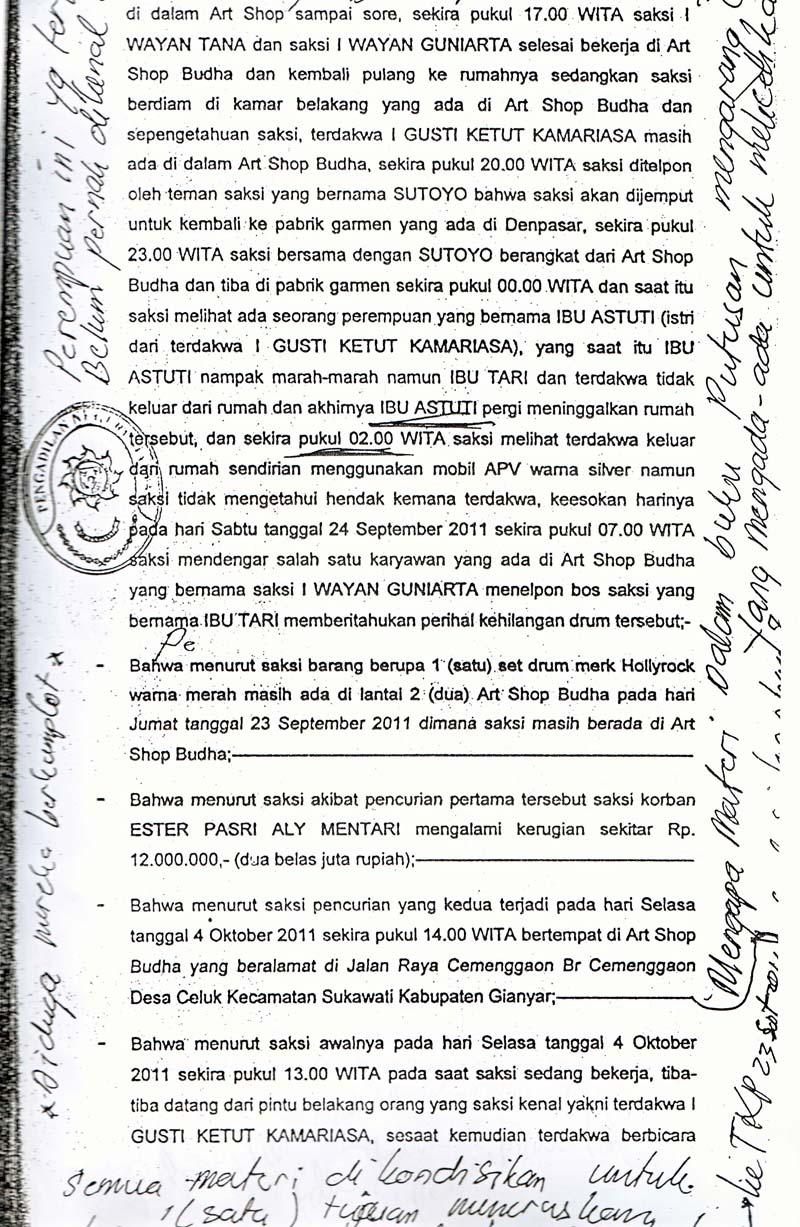 di dalam Art Shop sampai sore, sekira pukul 17.00 WITA saksi I
WAYAN TANA dan saksi I WAYAN GUNIARTA selesai bekerja di Art
Shop Budha dan kembali pulang ke rumahnya sedangkan saksi
berdiam di kamar belakang yang ada di Art Shop Budha dan
sepengetahuan saksi, terdakwa I GUSTI KETUT KAMARIASA masih
ada di dalam Art Shop Budha, sekira pukul 20.00 WITA saksi ditelpon
oleh teman saksi yang bernama SUTOYO bahwa saksi akan dijemput
untuk kembali ke pabrik garmen yang ada di Denpasar, sekira pukul
23.00 WITA saksi bersama dengan SUTOYO berangkat dari Art Shop
Budha dan tiba di pabrik garmen sekira pukul 00.00 WITA dan saat itu
saksi melihat ada seorang perempuan yang bernama IBU ASTUTI (istri
dari terdakwa I GUSTI KETUT KAMARIASA), yang saat itu IBU
ASTUTI nampak marah-marah namun IBU TARI dan terdakwa tidak
keluar dari rumah dan akhirnya IBU ASTUTI pergi meninggalkan rumah
tersebut, dan sekira pukul 02.00 WITA saksi melihat terdakwa keluar
dari rumah sendirian menggunakan mobil APV warna silver namun
saksi tidak mengetahui hendak kemana terdakwa, keesokan harinya
pada hari Sabtu tanggal 24 September 2011 sekira pukul 07.00 WITA
saksi mendengar salah satu karyawan yang ada di Art Shop Budha
yang bernama saksi I WAYAN GUNIARTA menelpon bos saksi yang
bernama IBU TARI memberitahukan perihal kehilangan drum tersebut;-
Pe
- Bahwa menurut saksi barang berupa 1 (satu) set drum merk Hollyrock
warna merah masih ada di lantai 2 (dua) Art Shop Budha pada hari
Jumat tanggal 23 September 2011 dimana saksi masih berada di Art
Shop Budha;
- Bahwa menurut saksi akibat pencurian pertama tersebut saksi korban
ESTER PASRI ALY MENTARI mengalami kerugian sekitar Rp.
12.000.000,- (dua belas juta rupiah);
- Bahwa menurut saksi pencurian yang kedua terjadi pada hari Selasa
tanggal 4 Oktober 2011 sekira pukul 14.00 WITA bertempat di Art Shop
Budha yang beralamat di Jalan Raya Cemenggaon Br Cemenggaon
Desa Celuk Kecamatan Sukawati Kabupaten Gianyar;
- Bahwa menurut saksi awalnya pada hari Selasa tanggal 4 Oktober
2011 sekira pukul 13.00 WITA pada saat saksi sedang bekerja, tiba-
tiba datang dari pintu belakang orang yang saksi kenal yakni terdakwa I
GUSTI KETUT KAMARIASA, sesaat kemudian terdakwa berbicara
Semua materi di kondisikan untuk
1 (satu) tujuan meneruskan
Perempuan ini yg
Belum pernah dikenal
* Diduga mereka berkomplot *
PENGADILAN NEGERI
Mengapa materi Dalam buku Putusan mengarang
yang mengada-ada untuk
ke TKP 23